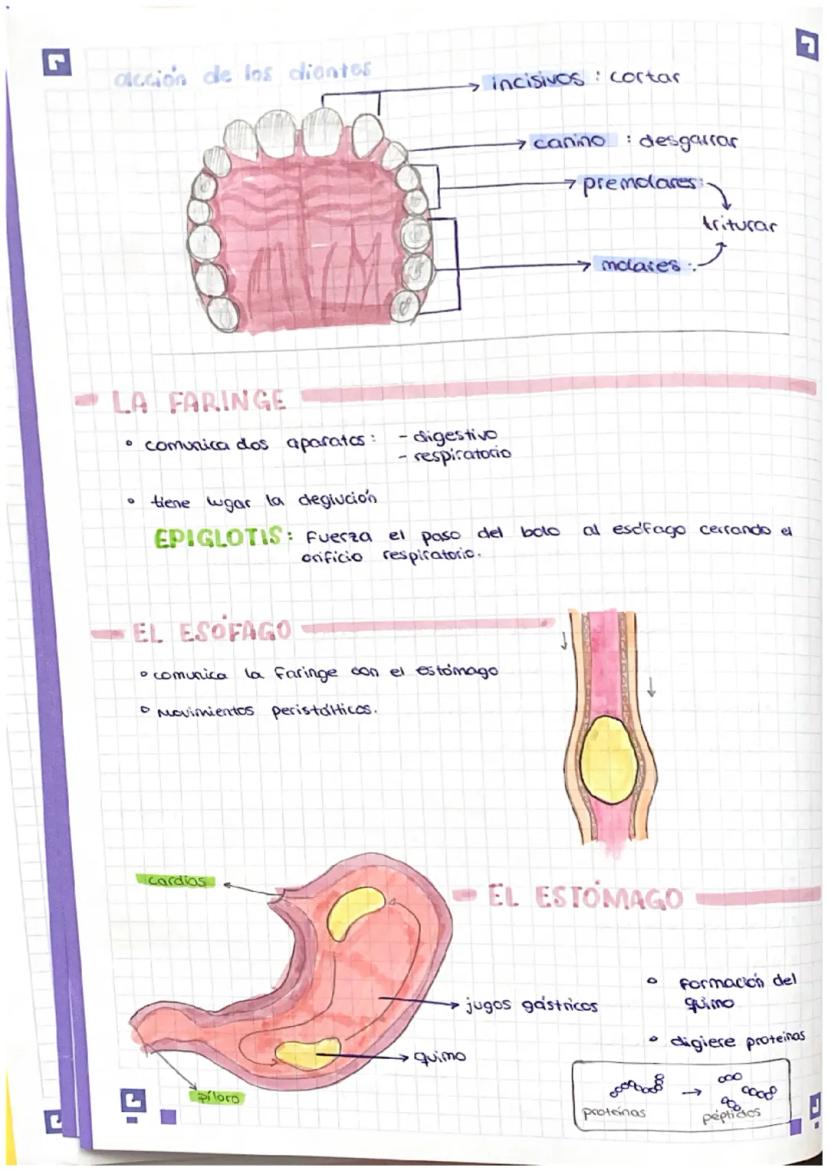 acción de los dientes
incisivos : cortar
canino : desgarrar
premolares:
triturar
molares :
LA FARINGE
comunica dos aparatos: - digestivo
- respiratorio
tiene lugar la deglución
EPIGLOTIS: Fuerza el paso del bolo al esófago cerrando el
orificio respiratorio.
EL ESÓFAGO
comunica la faringe con el estómago
Movimientos peristálticos.
cardias
EL ESTÓMAGO
formación del
quimo
jugos gástricos
digiere proteínas
quimo
píloro
proteínas
péptidos